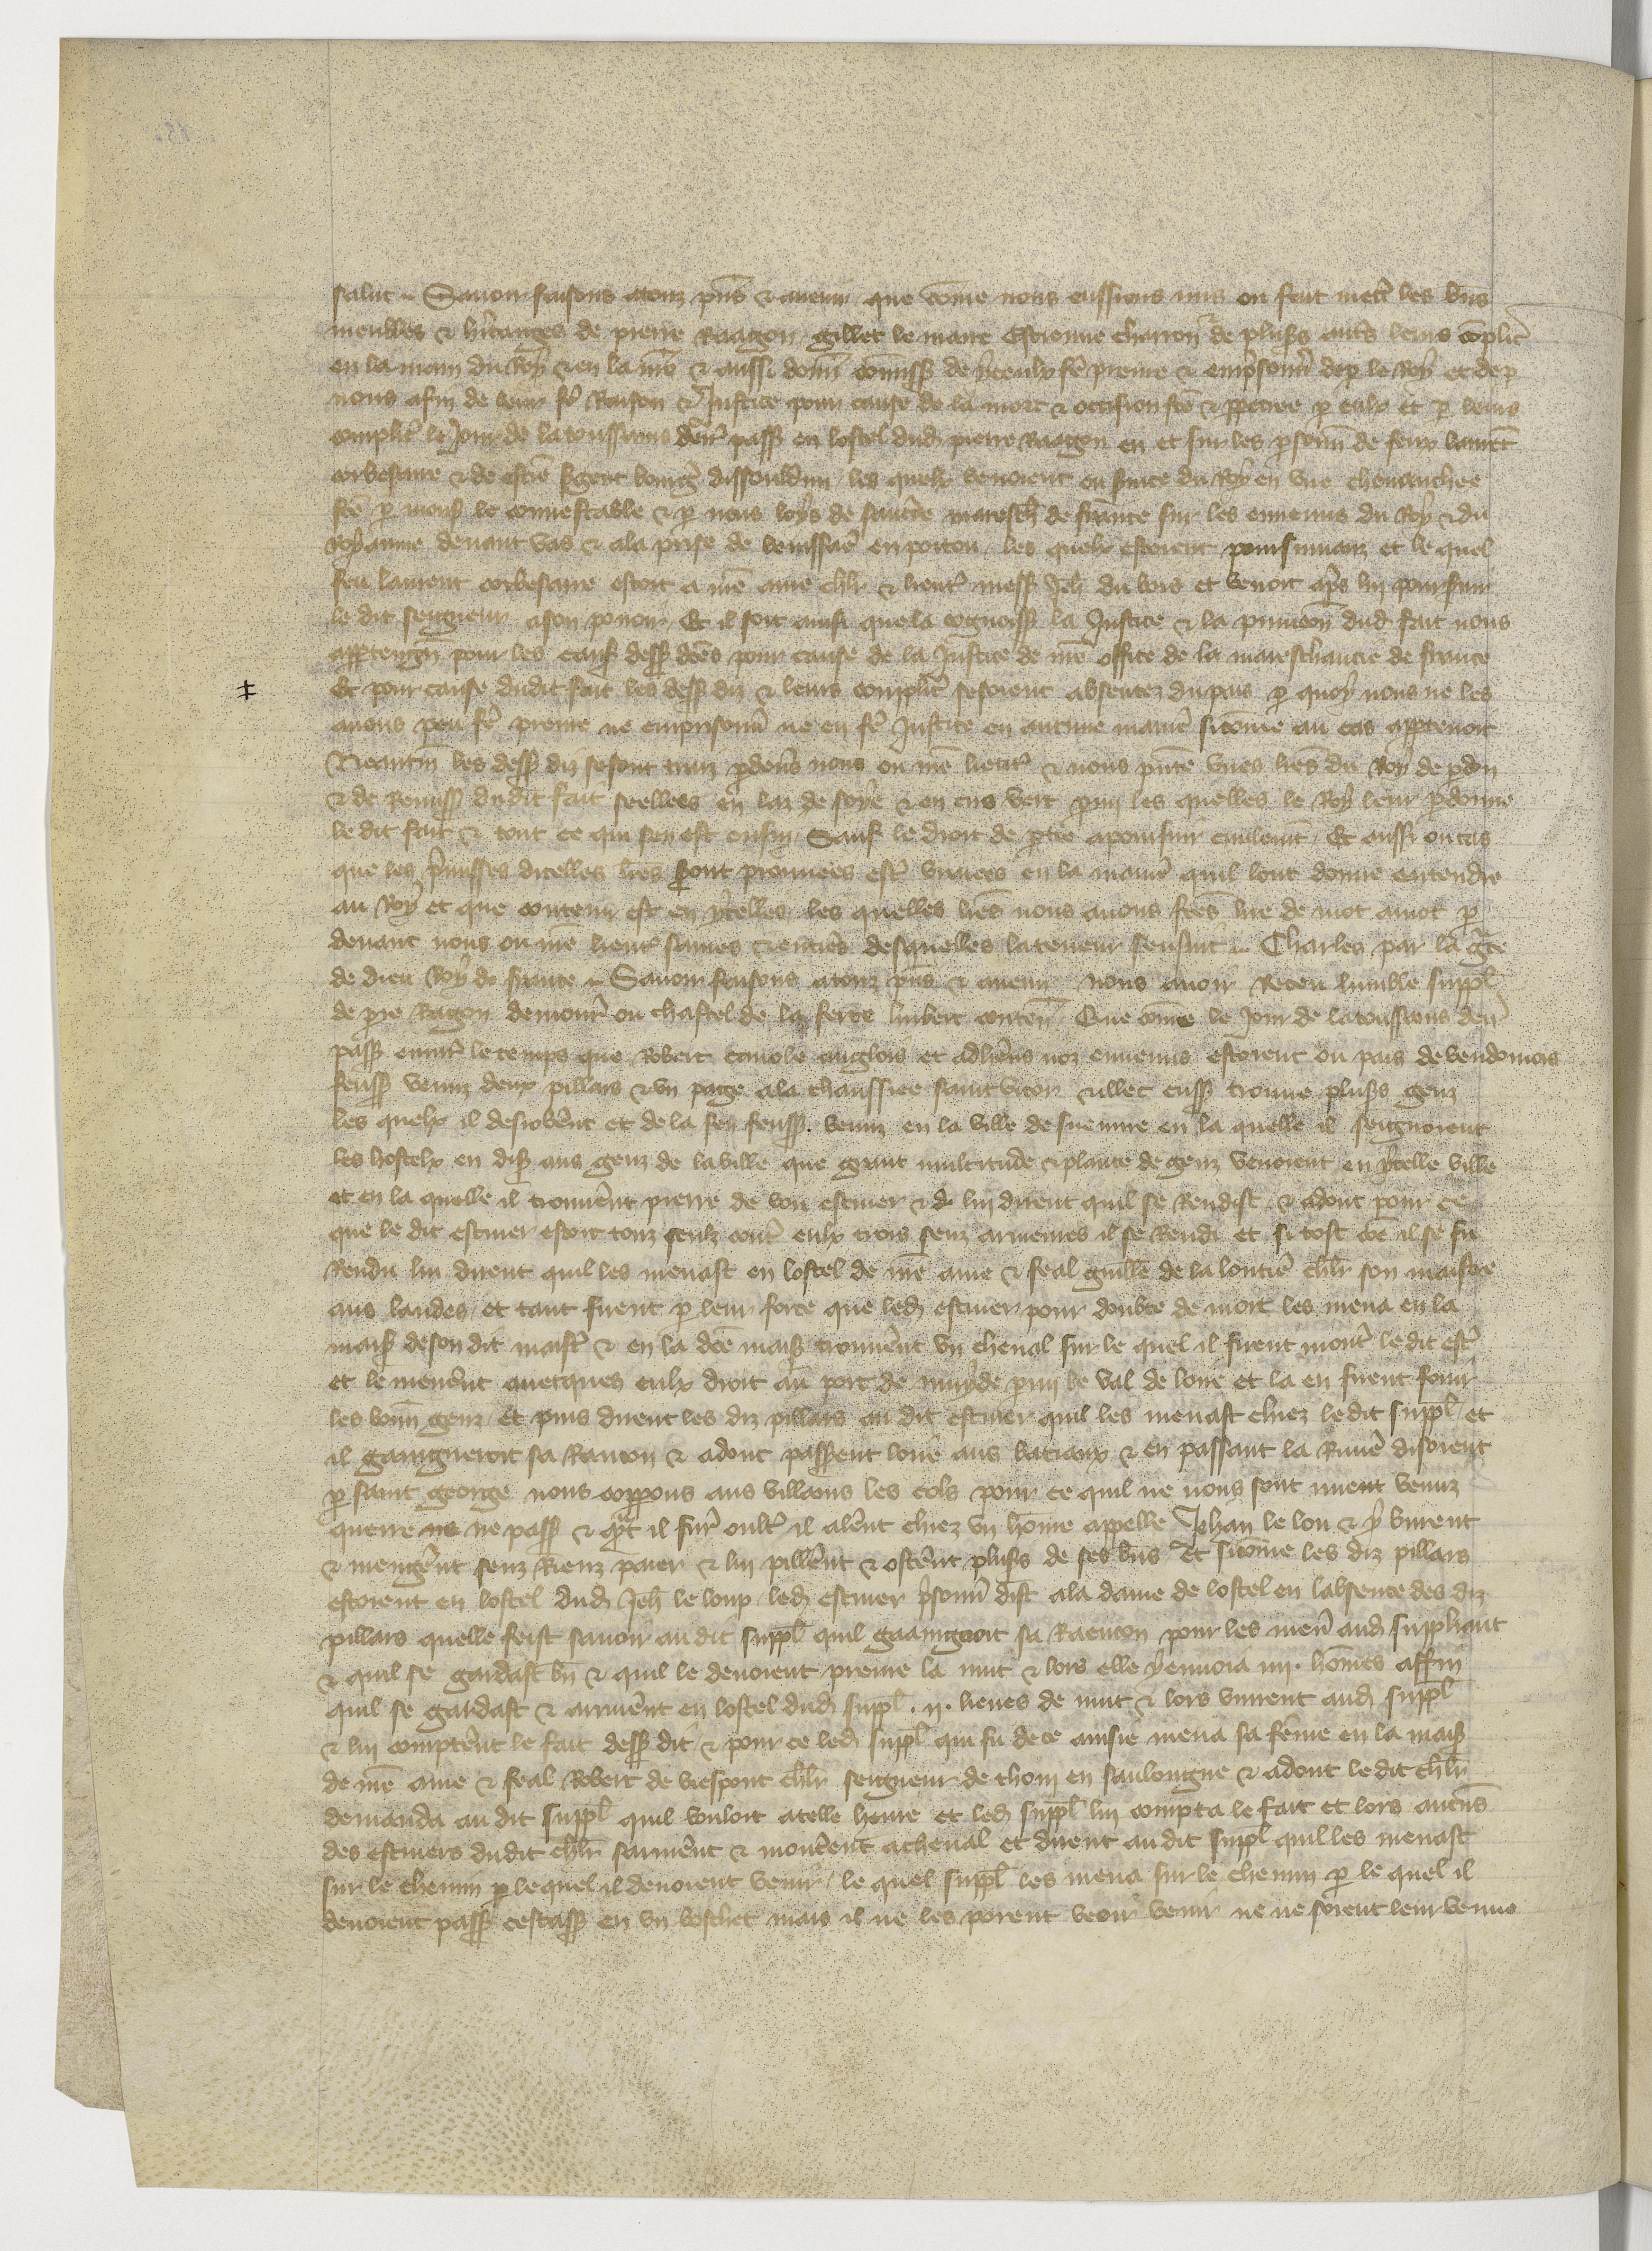 salut. Savoir faisons a touz p̃ns & avenir que cõme nous eussions mis ou fait mett̾ les bñs
meubles & h̾itages de pierre Raagon gillet le maire Estienne charron & de plus̾s aut̾s leurs cõplic̾
en la main du Roy & en la nr̃e & aussi donñ cõmiss̾ de yceulx fẽ prenre & emp̾sonñ de p̱ le Roy et de p̱
nous afin de leur fẽ Raison & Justice pour cause de la mort & occision fc̃e & p̱petree p̱ eulx et p̱ leurs
complic̾ le Jour de la toussains derñ̾ pass̾ en lostel dud̾ pierre Raagon en et sur les p̱sonñ de feux laurẽt
corbestane & de estiẽ s̾gent bourg̾ dissouldun les quelx venoient ou s̾vice du Roy en une chevauchee
fc̃e p̱ mons̾ le connestable & p̱ nous loys de sanc̾re maresch̾ de france sur les ennemis du Roy & du
Royaume devant vas & a la prise de benissac̾ en poitou les quelx estoient poursuivanz et le quel
feu laurent corbestane estoit a nr̃e ame chlr̃ & lieut̾ mess̾ Jeh̾ du bois et venoit ap̾s lui poursuir
le dit seigneur a son pouoir Et il soit ainsi que la cognoiss̾ la Justice & la punicõn dud̾ fait nous
app̱teigñ pour les caus̾ dess̾ dc̃es pour cause de la Justice de nr̃e office de la mareschaucie de france
Et pour cause dudit fait les dess̾ diz & leurs complic̾ se soient absentez du pais p̱ quoy nous ne les
avons peu fẽ prenre ne emprisonñ ne en fẽ Justice en aucune manie̾ si cõme au cas app̱tenoit
Neantm̃ les dess̾ diz se sont traiz p̱dev̾s nous ou nr̃e lieut̾ & nous p̾ntẽ unes lrẽs du Roy de p̱don
& de Remiss̾ dudit fait scellees en laz de soye & en cire vert p̱mi les quelles le Roy leur p̱donne
le dit fait & tout ce qui sen est ensui Sauf le droit de p̱tie a poursuir civilemt̃ Et aussi ou cas
que les p̾misses dicelles lrẽs s̾ont prouvees est̾ vraies en la manie̾ quil lont donne entendre
au Roy et que contenu est en ycelles les quelles lrẽs nous avons fc̃es lire de mot a mot p̱
devant nous ou nr̃e lieut̾ saines & entie̾s desquelles la teneur sensuit. Charles par la gr̃ce
de dieu Roy de france. Savoir faisons a touz p̃ns & avenir Nous avoir Receu lumble suppl̾
de pre Ragon demour̾ ou chastel de la ferte hubert conteñ Que cõme le Jour de la toussains derñ̾
pass̾ environ le temps que Robert canole anglois et adh̾ens noz ennemis estoient ou pais de vendomois
feuss̾ venuz deux pillars & un page a la chaussiee saint victor & illec euss̾ trouve plus̾s genz
les quelx il desrob̾ent et de la sen feuss̾ venuz en la ville de suevvre en la quelle il seignoient
les hostelx en dis̾ aus genz de la ville que grant multitude & plante de genz venoient en ycelle ville
et en la quelle il trouv̾ent pierre de vou escuier & de lui dirent quil se Rendist & adont pour ce
que le dit escuier estoit touz seulz cont̾ eulx trois senz armeures il se Rendi et si tost cõe il se fu
Rendu lui dirent quil les menast en lostel de nr̃e ame & feal guillẽ de la lontie̾ chlr̃ son maistre
aus landes et tant furent p̱ leur force que led̾ escuier pour doubte de mort les mena en la
mais̾ de son dit maist̾ & en la dc̃e mais̾ trouv̾ent un cheval sur le quel il furent mont̾ le dit esc̾
et le men̾ent avecques eulx droit au port de muyde p̱mi le val de loire et la en furent fouir
les bonñ genz Et puis dirent les diz pillars au dit escuier quil les menast chiez le dit suppl̾ et
il gaingneroit sa Rancon & adont pass̾ent loire aus bateaux & en passant la Rivie̾ disoient
p̱ saint george nous copp̱ons aus villains les cols pour ce quil ne nous sont mient venuz
querre ne ne pass̾ & q̃nt il fur̾ oult̾ il al̾ent chiez un hõme appelle Jehan le lou & y burent
& meng̾ent senz Rienz paier & lui pill̾ent & ost̾ent plus̾s de ses bñs Et si cõme les diz pillars
estoient en lostel dud̾ Jeh̾ le loup led̾ escuier p̾sonñ dist a la dame de lostel en labsence des diz
pillars quelle feist savoir au dit suppl̾ quil gaaingnoit sa Raencon pour les men̾ aud̾ suppliant
& quil se gardast bñ & quil le devoient prenre la nuit & lors elle y envoia iiii. hõmes affin
quil se gardast & arriv̾ent en lostel dud̾ suppl̾ .ii. lieues de nuit & lors vinrent aud̾ suppl̾
& lui compt̾ent le fait dess̾ dit & pour ce led̾ suppl̾ qui fu de ce avisie mena sa fẽme en la mais̾
de nr̃e ame & feal Robert de viespont chlr̃ seigneur de thoin en sauloigne & adont le dit chlr̃
demanda au dit suppl̾ quil vouloit a telle heure et led̾ suppl̾ lui compta le fait et lors aucũs
des escuiers dudit chlr̃ sarm̾ent & mont̾ent a cheval et dirent au dit suppl̾ quil les menast
sur le chemin p̱ lequel il devoient venir le quel suppl̾ les mena sur le chemin p̱ le quel il
devoient pass̾ cestass̾ en un boschet mais il ne les porent veoir venir ne ne soient leur venue